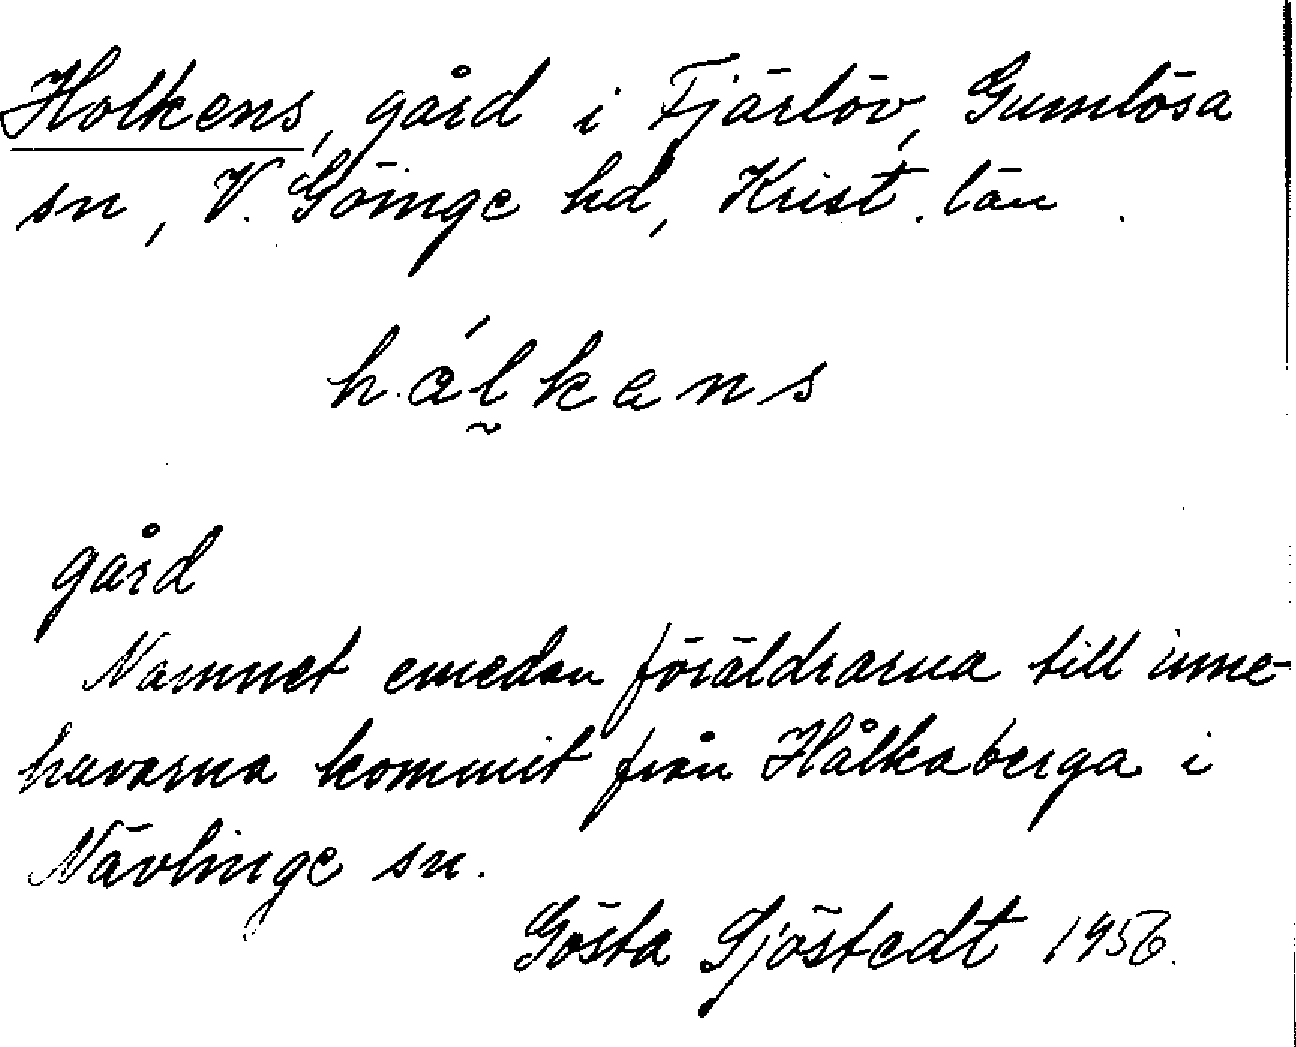 Holkens, gård i Fjärlöv, Gumlösa
sn, V. Göinge hd, Krist. län.
hálkens
gård
Namnet emedan föräldrarna till inne-
havarna kommit från Hålkaberga i
Nävlinge sn.
Gösta Sjöstedt 1956.